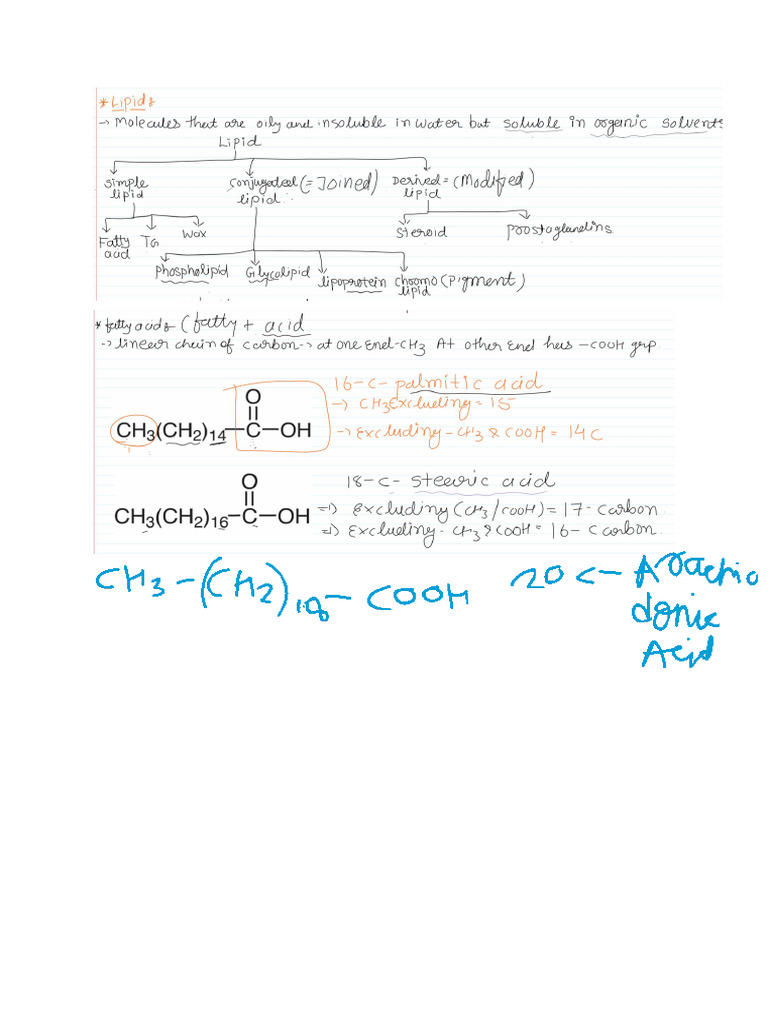 * Lipids
→ Molecules that are oily and insoluble in water but soluble in organic solvents
Lipid
simple lipid
conjugated (= Joined) lipid
Derived = (Modified) lipid
Fatty acid
TG
Wax
Steroid
Prostaglandins
phospholipid
Glycolipid
lipoprotein
chromo (Pigment) lipid
* fatty acids (fatty + acid
→ linear chain of carbon → at one end -CH3 At other end has -COOH grp.
16-C- palmitic acid
→ CH3 Excluding = 15
→ Excluding - CH3 & COOH = 14 C
O
CH3(CH2)14-C-OH
18-C- stearic acid
⇒ Excluding (CH3/COOH) = 17- Carbon
⇒ Excluding- CH3 & COOH = 16- Carbon.
O
CH3(CH2)16-C-OH
CH3-(CH2)18-COOH
20 C- Arachi
donic
Acid